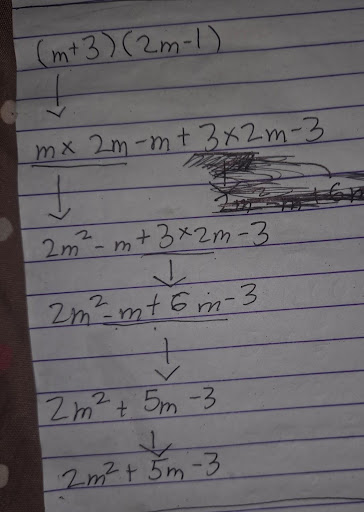 (m+3)(2m-1)
m × 2m - m + 3 × 2m - 3
2m² - m + 3 × 2m - 3
2m² - m + 6m - 3
2m² + 5m - 3
2m² + 5m - 3